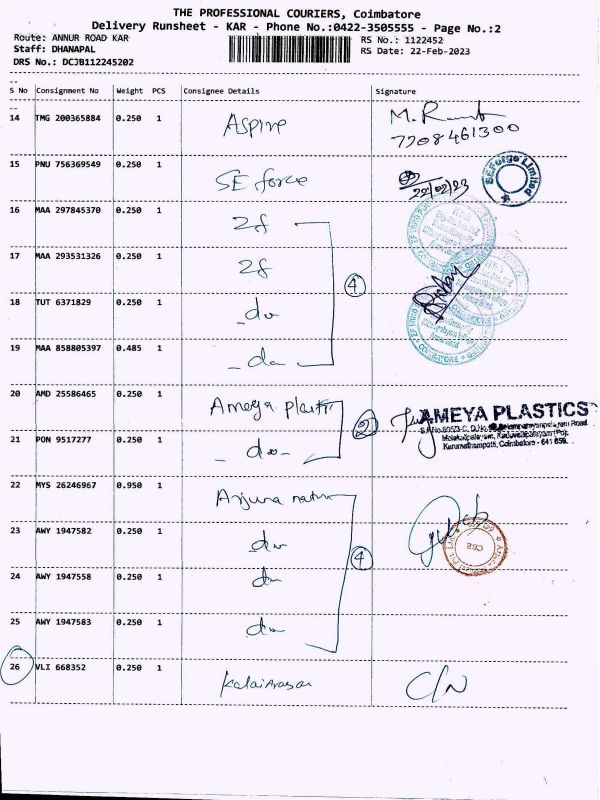 THE PROFESSIONAL COURIERS, Coimbatore
Delivery Runsheet - KAR - Phone No.:0422-3505555 - Page No.:2
Route: ANNUR ROAD KAR RS No.: 1122452
Staff: DHANAPAL RS Date: 22-Feb-2023
DRS No.: DCJB112245202
S No Consignment No Weight PCS Consignee Details Signature
14 TMG 200365884 0.250 1 Aspire M.
7708461300
15 PNU 756369549 0.250 1 SE force 22/02/23 S.E.Forge Limited
16 MAA 297845370 0.250 1 2f
17 MAA 293531326 0.250 1 2f
4
18 TUT 6371829 0.250 1 -do
19 MAA 858805397 0.485 1 -do COIMBATORE
20 AMD 25586465 0.250 1 Ameya plasti 2 AMEYA PLASTICS
21 PON 9517277 0.250 1 -do- Coimbatore - 641 659.
22 MYS 26246967 0.950 1 Arjuna natu
23 AWY 1947582 0.250 1 do CBE
4
24 AWY 1947558 0.250 1 do
25 AWY 1947583 0.250 1 do
26 VLI 668352 0.250 1 Kalaiarasan C/N